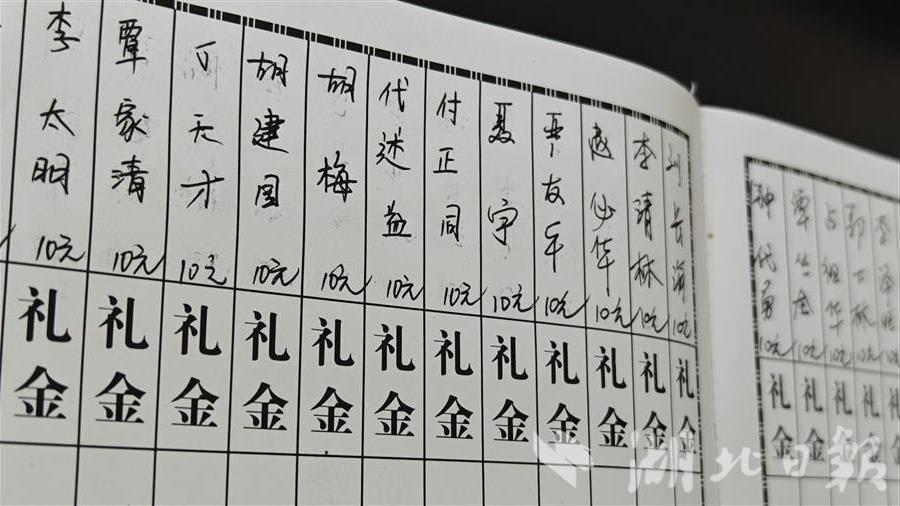 李太明 10元 礼金
覃家清 10元 礼金
天才 10元 礼金
胡建国 10元 礼金
胡梅 10元 礼金
代述益 10元 礼金
付正同 10元 礼金
聂宇 10元 礼金
覃友年 10元 礼金
赵必华 10元 礼金
李清林 10元 礼金
刘长海 10元 礼金
钟代勇 10元 礼金
覃 10元 礼金
华 10元 礼金
郭 林 10元 礼金
李 10元 礼金
湖北日報